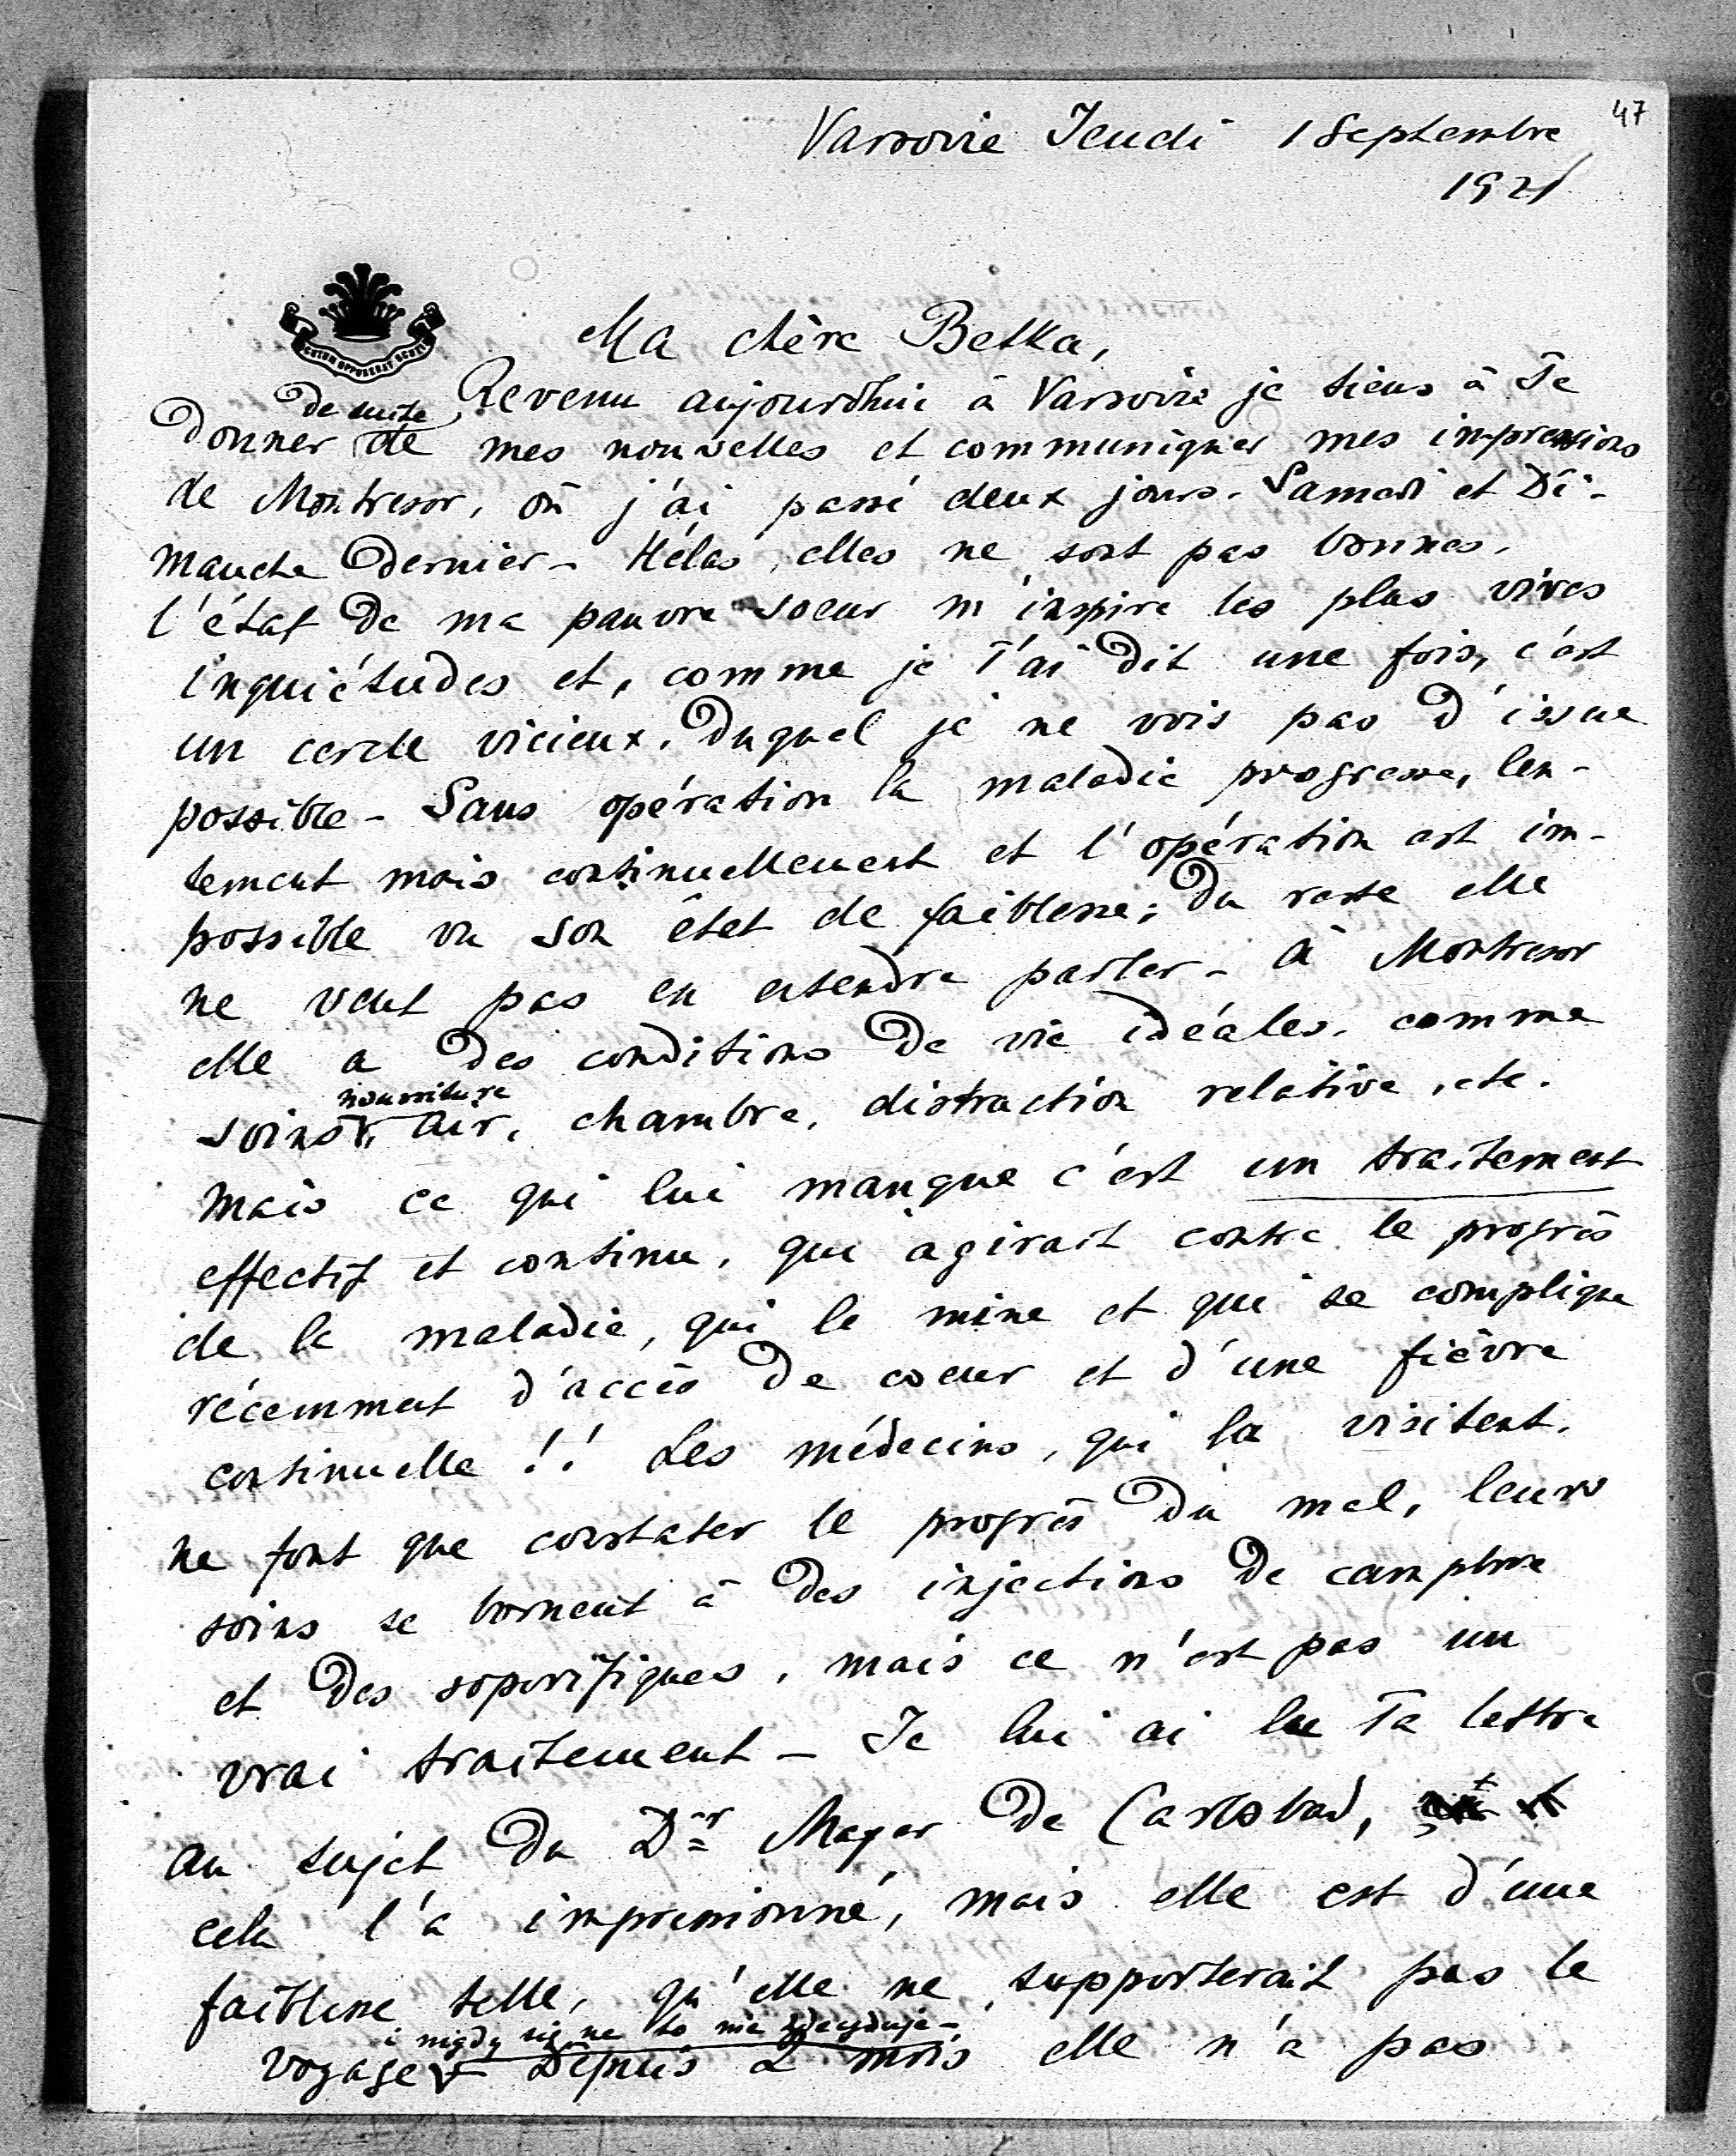 47
Varsovie Jeudi 1 Septembre
1921
SCUTUM OPPONEBAT SCUTIS
Ma chère Betka,
Revenu aujourdhui à Varsovie je tiens à Te
de suite
donner de mes nouvelles et communiquer mes impressions
de Montresor, où j'ai passé deux jours. Samedi et Di-
manche dernier - Hélas, elles ne sont pas bonnes.
l'état de ma pauvre soeur m'inspire les plus vives
inquiétudes et, comme je T'ai dit une fois, c'est
un cercle vicieux, duquel je ne vois pas d'issue
possible - Sans opération la maladie progresse, len-
tement mais continuellement et l'opération est im-
possible vu son état de faiblesse; du reste elle
ne veut pas en entendre parler - à Montresor
elle a des conditions de vie idéales, comme
nourriture
soins, air, chambre, distraction relative, etc.
mais ce qui lui manque c'est un traitement
effectif et continu, qui agirait contre le progrès
de la maladie, qui la mine et qui se complique
récemment d'accès de coeur et d'une fièvre
continuelle !! Les médecins, qui la visitent,
ne font que constater le progrès du mal, leurs
soins se bornent à des injections de camphre
et des soporifiques, mais ce n'est pas un
vrai traitement - Je lui ai lu Ta lettre
au sujet du Dr Mayer de Carlsbad,
cela l'a impressionné, mais elle est d'une
faiblesse telle, qu'elle ne supporterait pas le
i nigdy się na to nie zdecyduje -
voyage Depuis 2 mois elle n'a pas